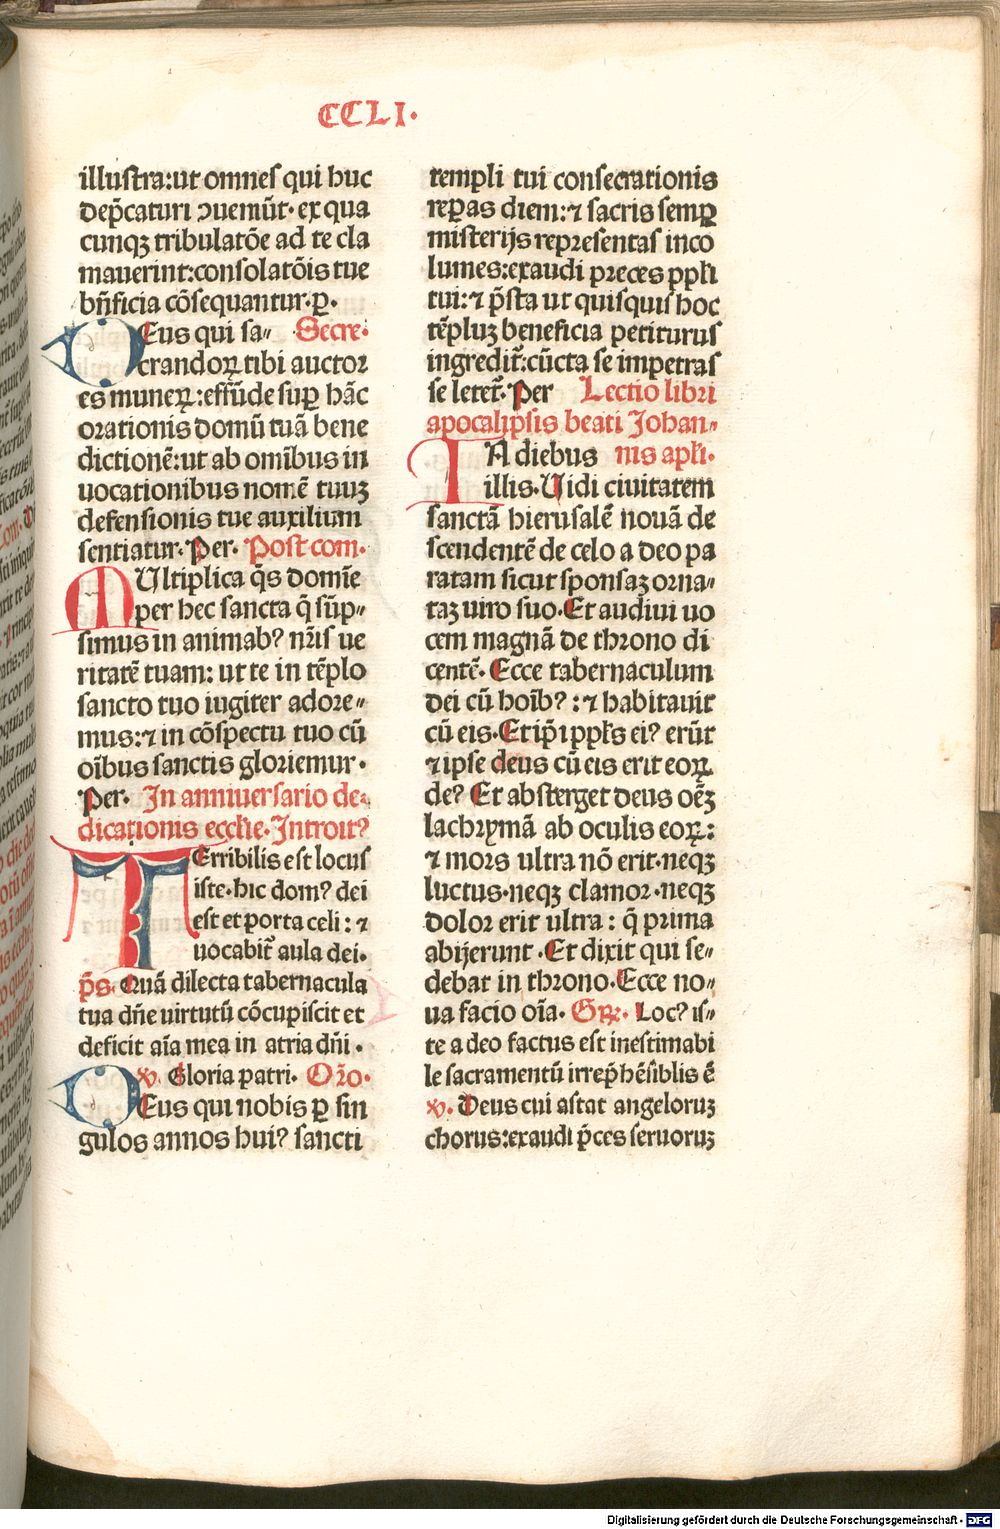 CCLI.
illustra:ut omnes qui huc
dep̄caturi ꝯueniūt. ex qua
cunqꝫ tribulatōe ad te cla
mauerint:consolatōis tue
bn̄ficia cōsequantur. p̲.
DEus qui sa⸗ Secre.
crandoꝝ tibi auctor
es muneꝝ:effūde suꝑ hāc
orationis domū tuā bene
dictionē:ut ab om̄ibus in
uocationibus nomē tuuꝫ
defensionis tue auxilium
sentiatur. Per. Post com.
MUltiplica q̄s domīe
per hec sancta q̄ sūp⸗
simus in animabꝰ nr̄is ue
ritatē tuam: ut te in tēplo
sancto tuo iugiter adore⸗
mus:⁊ in cōspectu tuo cū
oībus sanctis gloriemur.
Per. In anniuersario de⸗
dicationis eccl̄ie. Introitꝰ
TErribilis est locus
iste. hic domꝰ dei
est et porta celi: ⁊
uocabit̄ aula dei.
p̄s. Quā dilecta tabernacula
tua dn̄e uirtutū cōcupiscit et
deficit aīa mea in atria dn̄i.
℣. Gloria patri. Or̄o.
DEus qui nobis ꝑ sin
gulos annos huiꝰ sancti
templi tui consecrationis
reꝑas diem:⁊ sacris semꝑ
misterijs representas inco
lumes:exaudi preces ppl̄i
tui:⁊ p̄sta ut quisquis hoc
tēpluꝫ beneficia petiturus
ingredit̄:cūcta se impetras
se letet̄. Per Lectio libri
apocalipsis beati Johan⸗
INA diebus nis apl̄i.
illis. Uidi ciuitatem
sanctā hierusalē nouā de
scendentē de celo a deo pa
ratam sicut sponsaꝫ orna⸗
taꝫ uiro suo. Et audiui uo
cem magnā de throno di
centē. Ecce tabernaculum
dei cū hoībꝰ: ⁊ habitauit
cū eis. Et ip̄i ppl̄s eiꝰ erūt
⁊ ipse deus cū eis erit eoꝝ
deꝰ Et absterget deus oēꝫ
lachrymā ab oculis eoꝝ:
⁊ mors ultra nō erit. neqꝫ
luctus. neqꝫ clamor. neqꝫ
dolor erit ultra: q̄ prima
abijerunt. Et dixit qui se⸗
debat in throno. Ecce no⸗
ua facio oīa. Gꝝ. Locꝰ is⸗
te a deo factus est inestimabi
le sacramentū irrep̄hēsiblis ē
℣. Deus cui astat angeloruꝫ
chorus:exaudi p̄ces seruoruꝫ
Digitalisierung gefördert durch die Deutsche Forschungsgemeinschaft - DFG